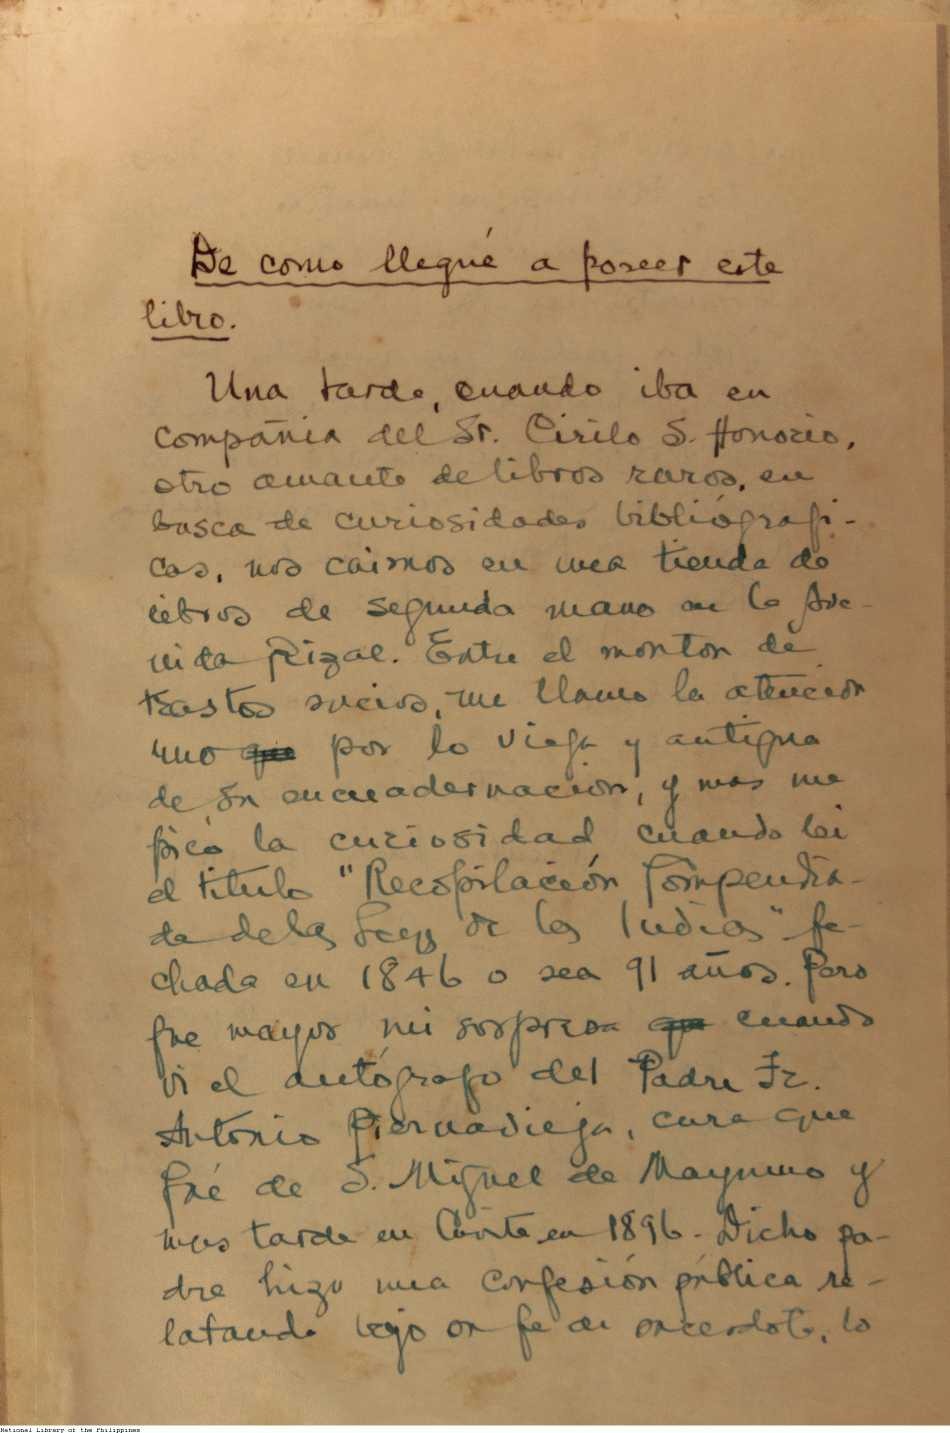 De como llegué a poseer este
libro.
Una tarde, cuando iba en
compañia del Sr. Cirilo S. Honorio,
otro amante de libros raros, en
busca de curiosidades bibliógrafi-
cas, nos caimos en una tienda de
libros de segunda mano en la Ave-
nida Rizal. Entre el monton de
trastos sucios, me llamo la atención
uno que por lo vieja y antigua
de su encuadernación, y mas me
picó la curiosidad cuando lei
el titulo "Recopilación Compendia-
da de las Leyes de las Indias" fe-
chada en 1846 o sea 91 años. Pero
fue mayor mi sorpresa que cuando
vi el autógrafo del Padre Fr.
Antonio Piernavieja, cura que
fué de S. Miguel de Mayumo y
mas tarde en Cavite en 1896. Dicho pa-
dre hizo una confesión pública re-
latando bajo su fe de sacerdote, lo
National Library of the Philippines